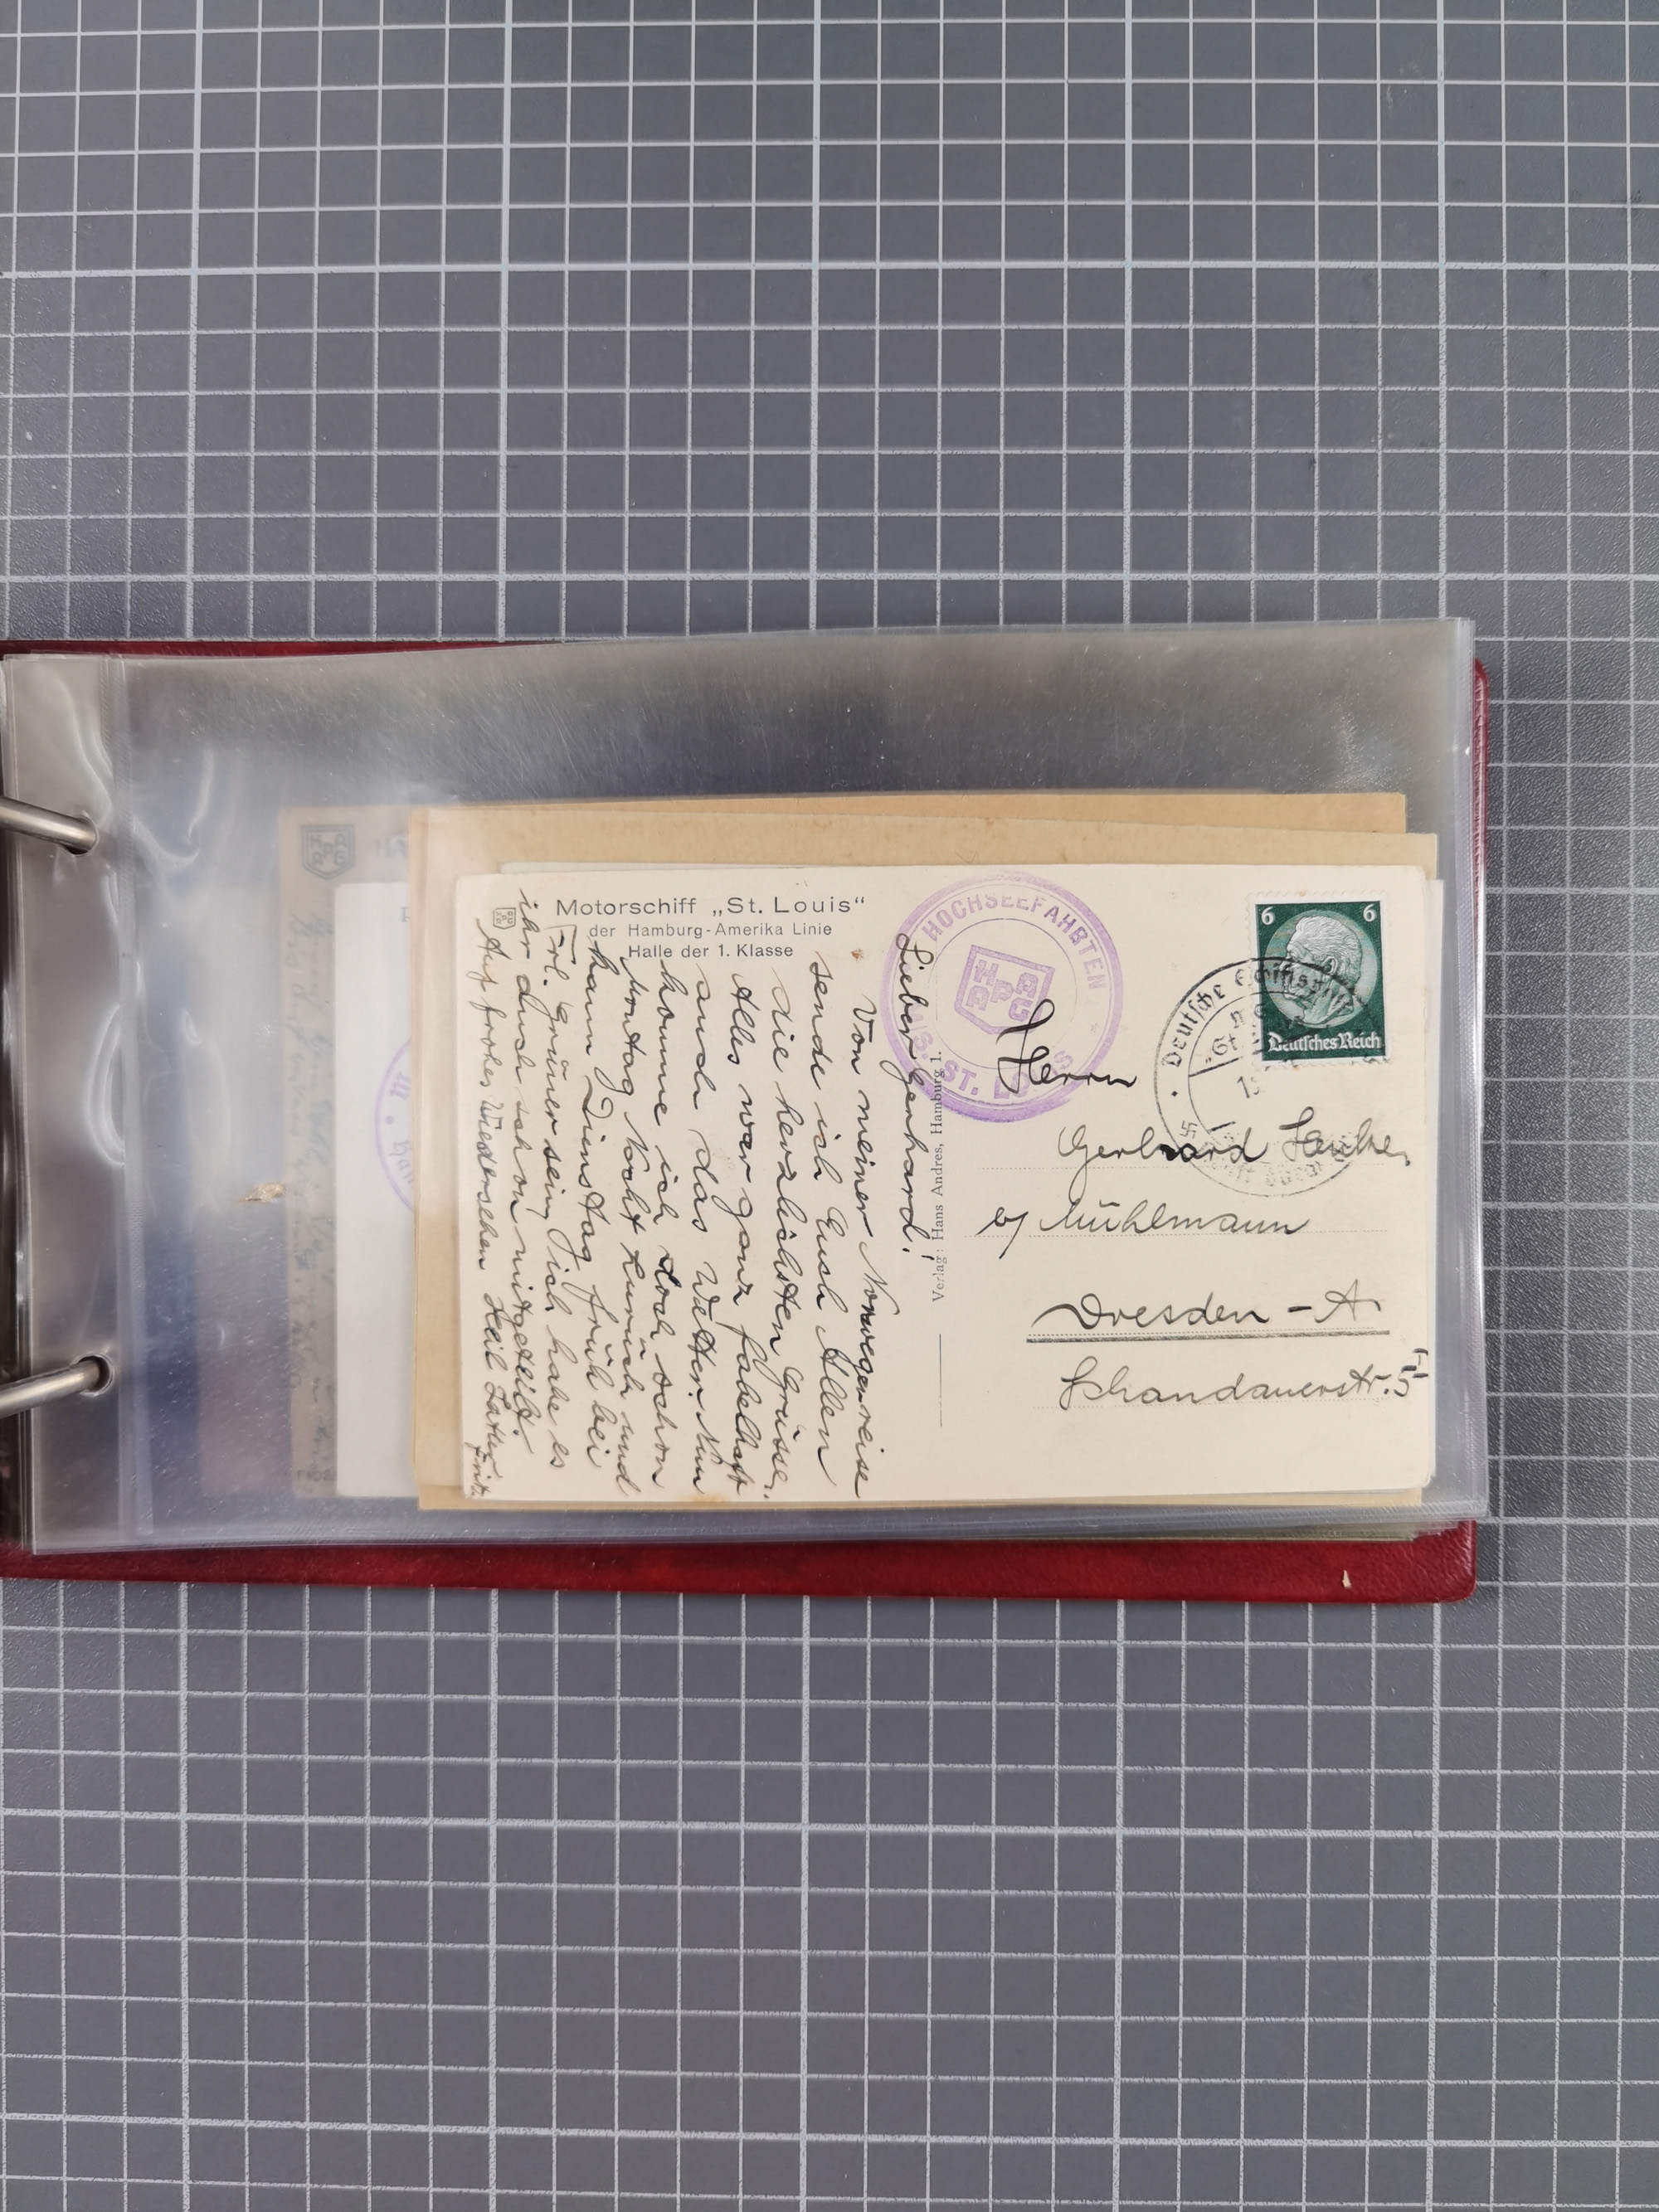 Motorschiff „St. Louis“
der Hamburg-Amerika Linie
Halle der 1. Klasse
Lieber Gerhard!
Von meiner Norwegenreise
sende ich Euch Allen
die herzlichsten Grüsse.
Alles war ganz fabelhaft
auch das Wetter. Nun
komme ich doch schon
Montag Nacht zurück und
kann Dienstag früh bei
Frl. Grüner sein, ich habe es
ihr auch schon mitgeteilt.
Auf frohes Wiedersehen Heil
Fritz
Verlag: Hans Andres, Hamburg 1.
HOCHSEEFAHRTEN
HAPAG
M.S. ST. LOUIS
6 6
Deutsches Reich
Deutsche Schiffspost
Herrn
Gerhard
b/ Mühlmann
Dresden - A
Schandauerstr. 5